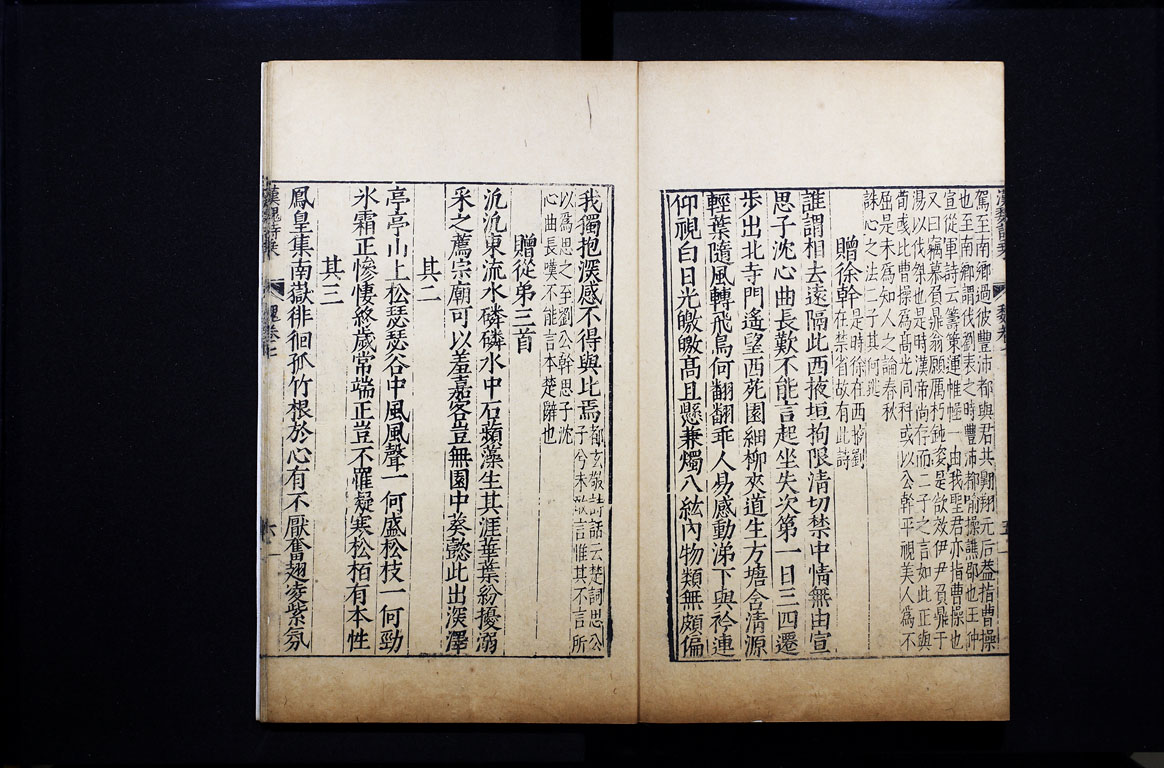 駕至南鄉過彼豐沛都與君共翺翔元后葢指曹操
也至南鄉謂伐劉表之時豐沛都喻操譙郡也王仲
宣從軍詩云籌策運帷幄一由我聖君亦指曹操也
又曰竊慕負鼎翁願厲朽鈍姿是欲效伊尹負鼎于
湯以伐桀也是時漢帝尚存而二子之言如此正與
荀彧比曹操爲髙光同科或以公幹平視美人爲不
屈是未爲知人之論春秋
誅心之法二子其何逃
贈徐幹是時徐在西掖劉
在禁省故有此詩
誰謂相去遠隔此西掖垣拘限淸切禁中情無由宣
思子沈心曲長歎不能言起坐失次第一日三四遷
步出北寺門遙望西苑園細柳夾道生方塘含淸源
輕葉隨風轉飛鳥何翻翻乖人易感動涕下與衿連
仰視白日光皦皦髙且懸兼燭八紘內物類無頗偏
我獨抱深感不得與比焉都玄敬詩話云楚詞思公
子兮未敢言惟其不言所
以爲思之至劉公幹思子沈
心曲長嘆不能言本楚辭也
贈從弟三首
汎汎東流水磷磷水中石蘋藻生其涯華葉紛擾溺
采之薦宗廟可以羞嘉客豈無園中葵懿此出深澤
其二
亭亭山上松瑟瑟谷中風風聲一何盛松枝一何勁
氷霜正慘悽終歲常端正豈不羅凝寒松栢有本性
其三
鳳皇集南嶽徘徊孤竹根於心有不厭奮翅凌紫氛
漢魏詩乘
魏卷七
六